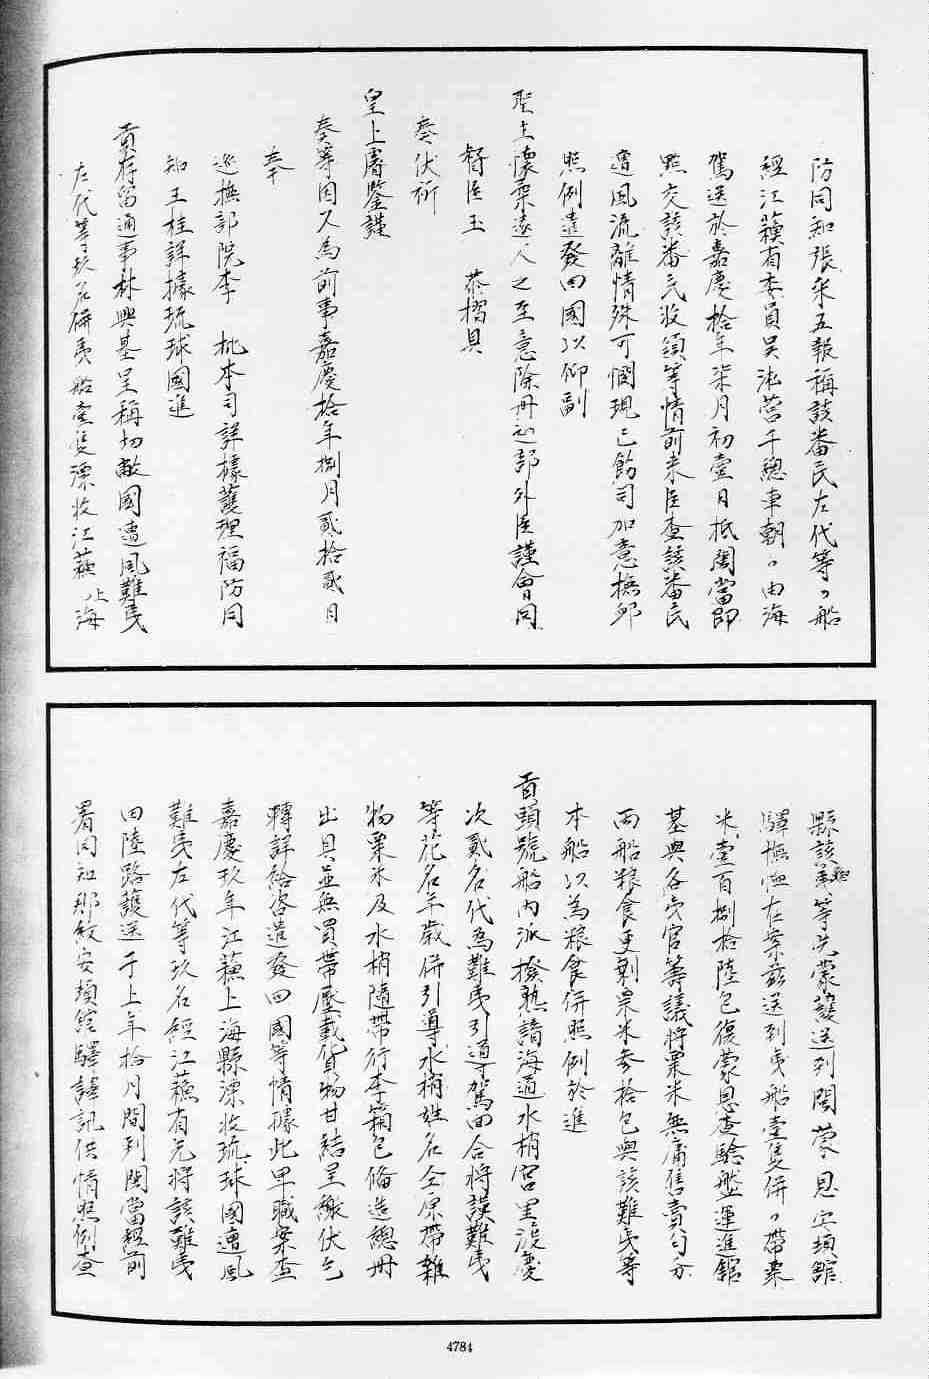 防同知張采五報稱該番民左代等々船
經江蘇省委員吳淞營千總車朝々由海
駕送於嘉慶拾年柒月初壹日抵閩當即
點交該番民收領等情前来臣查該番民
遭風流離情殊可憫現已飭司加意撫邺
照例遣發回國以仰副
聖主懷柔遠人之至意除冊送部外臣謹會同
督臣玉 恭摺具
奏伏祈
皇上睿鑒謹
奏等因又為前事嘉慶拾年捌月貳拾貳日
奉
巡撫部院李 批本司詳據護理福防同
知王桂詳據琉球國進
貢存留通事林興基呈稱切敝國遭風難夷
左代等玖名併夷船壹隻漂收江蘇上海
縣該難夷等先蒙護送到閩蒙恩安頓舘
驛撫恤在案兹送到夷船壹隻併々帶粟
米壹百捌拾陸包復蒙恩查驗盤運進舘
基與各穴官等議將粟米無庸售賣勻分
両船粮食更剩粟米叁拾包與該難夷等
本船以為粮食併照例於進
貢頭號船内派撥熟諳海道水梢宮里渡慶
次貳名代為難夷引導駕回合將該難夷
等花名年歲併引導水梢姓名仝原帶雜
物粟米及水梢隨帶行李箱包備造總冊
出具並無買帶壓載貨物甘結呈繳伏乞
轉詳給咨遣發回國等情據此卑職案查
嘉慶玖年江蘇上海縣漂收琉球國遭風
難夷左代等玖名經江蘇省先將該難夷
由陸路護送于上年拾月間到閩當經前
署同知那紋安頓舘驛譯訊供情照例查
4784